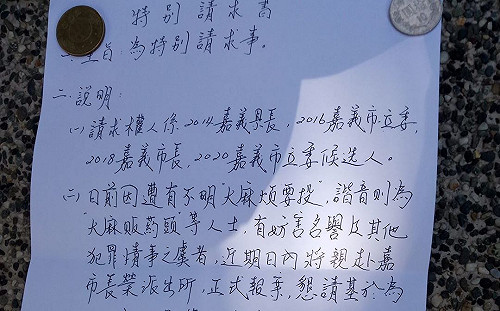 特別請求書
一.主旨:為特別請求事。
二.說明:
(一)請求權人係2014嘉義県長,2016嘉義市立委,
2018嘉義市長,2020嘉義市立委候选人。
(二)日前因遭有不明"大麻煩要投",諧音則為
"大麻販药頭"等人士,有妨害名譽及其他
犯罪情事之虞者,近期日內將親赴嘉
市長榮派出所,正式報案,懇請基於為